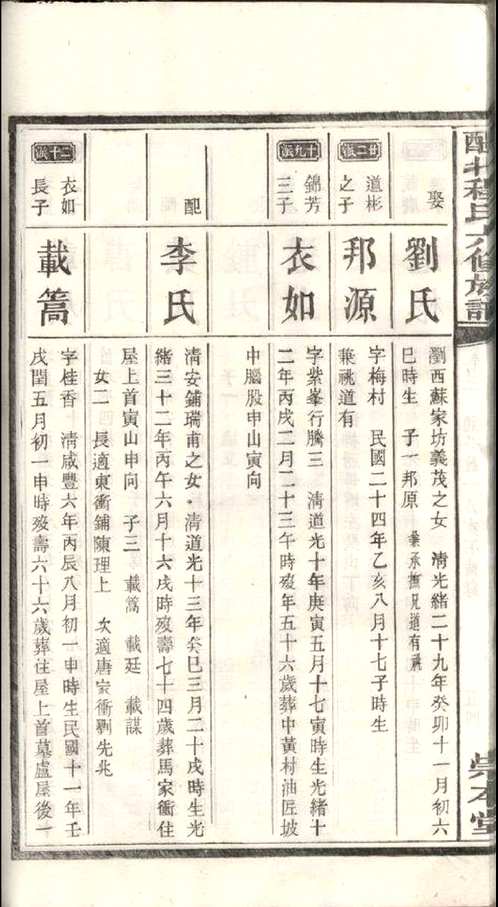 程氏六修族譜
崇本堂
娶
劉氏
瀏西蘇家坊義茂之女 清光緒二十九年癸卯十一月初六
巳時生 子一邦原 兼承胞兄道有嗣
廿二派
道彬
之子
邦源
字梅村 民國二十四年乙亥八月十七子時生
兼祧道有
十九派
錦芳
三子
衣如
字紫峯行騰三 清道光十年庚寅五月十七寅時生光緒十
二年丙戌二月二十三午時歿年五十六歲葬中黃村油匠坡
中腦股申山寅向
配
李氏
清安鋪瑞甫之女 清道光十三年癸巳三月二十戌時生光
緒三十二年丙午六月十六戌時歿壽七十四歲葬馬家衝住
屋上首寅山申向 子三 載篙 載廷 載謀
女二 長適東衝鋪陳理上 次適唐家衝劉先兆
二十派
衣如
長子
載篙
字桂香 清咸豐六年丙辰八月初一申時生民國十一年壬
戌閏五月初一申時歿壽六十六歲葬住屋上首墓廬屋後一